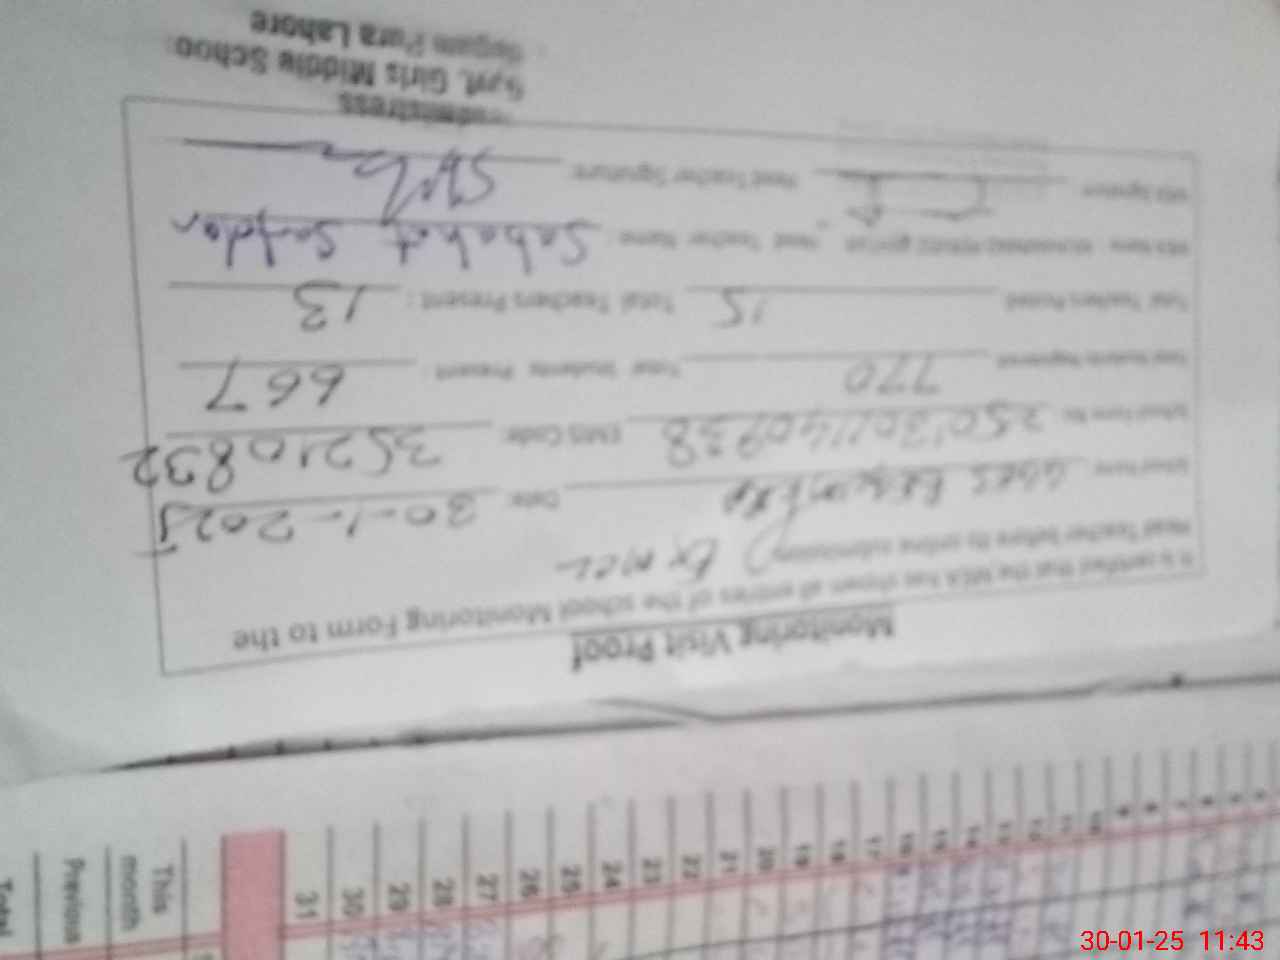 Monitoring Visit Proof
It is certified that the MEA has shown all entries of the school Monitoring Form to the
Head Teacher before its online submission. Ex MCL
School Name: GGES Date: 30-1-2025
School Form No: EMIS Code: 35210832
Total Students Registered: 770 Total Students Present: 667
Total Teachers Posted: 15 Total Teachers Present: 13
MEA Name: Head Teacher Name: Sabahat Safdar
MEA Signature: Head Teacher Signature:
Govt. Girls Middle Schoo
Begum Pura Lahore
31 30 29 28 27 26 25 24 23 22 21 20 19 18 17 16 15 14 13 12 11 10 9 8 7
This month
Previous
Total
30-01-25 11:43